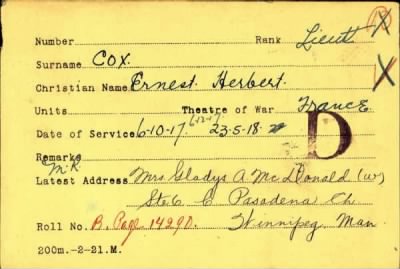 Number Rank Lieut X
Surname COX. X
Christian Name Ernest Herbert.
Units Theatre of War France
6-12-17
Date of Service 6-10-17. 23-5-18.
D
Remarks
M.R.
Latest Address Mrs. Gladys A. McDonald (W)
Ste. 6 C Pasadena
Roll No. B. Page 14290. Winnipeg, Man.
200m.-2-21.M.